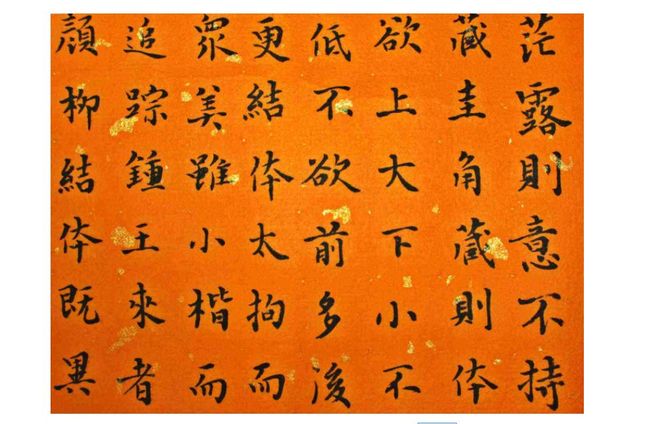 茫露則意不持
藏圭角藏則体
欲上大下小不
低不欲前多後
更結体太拘而
眾美雖小楷而
追踪鍾王來者
顏柳結体既異